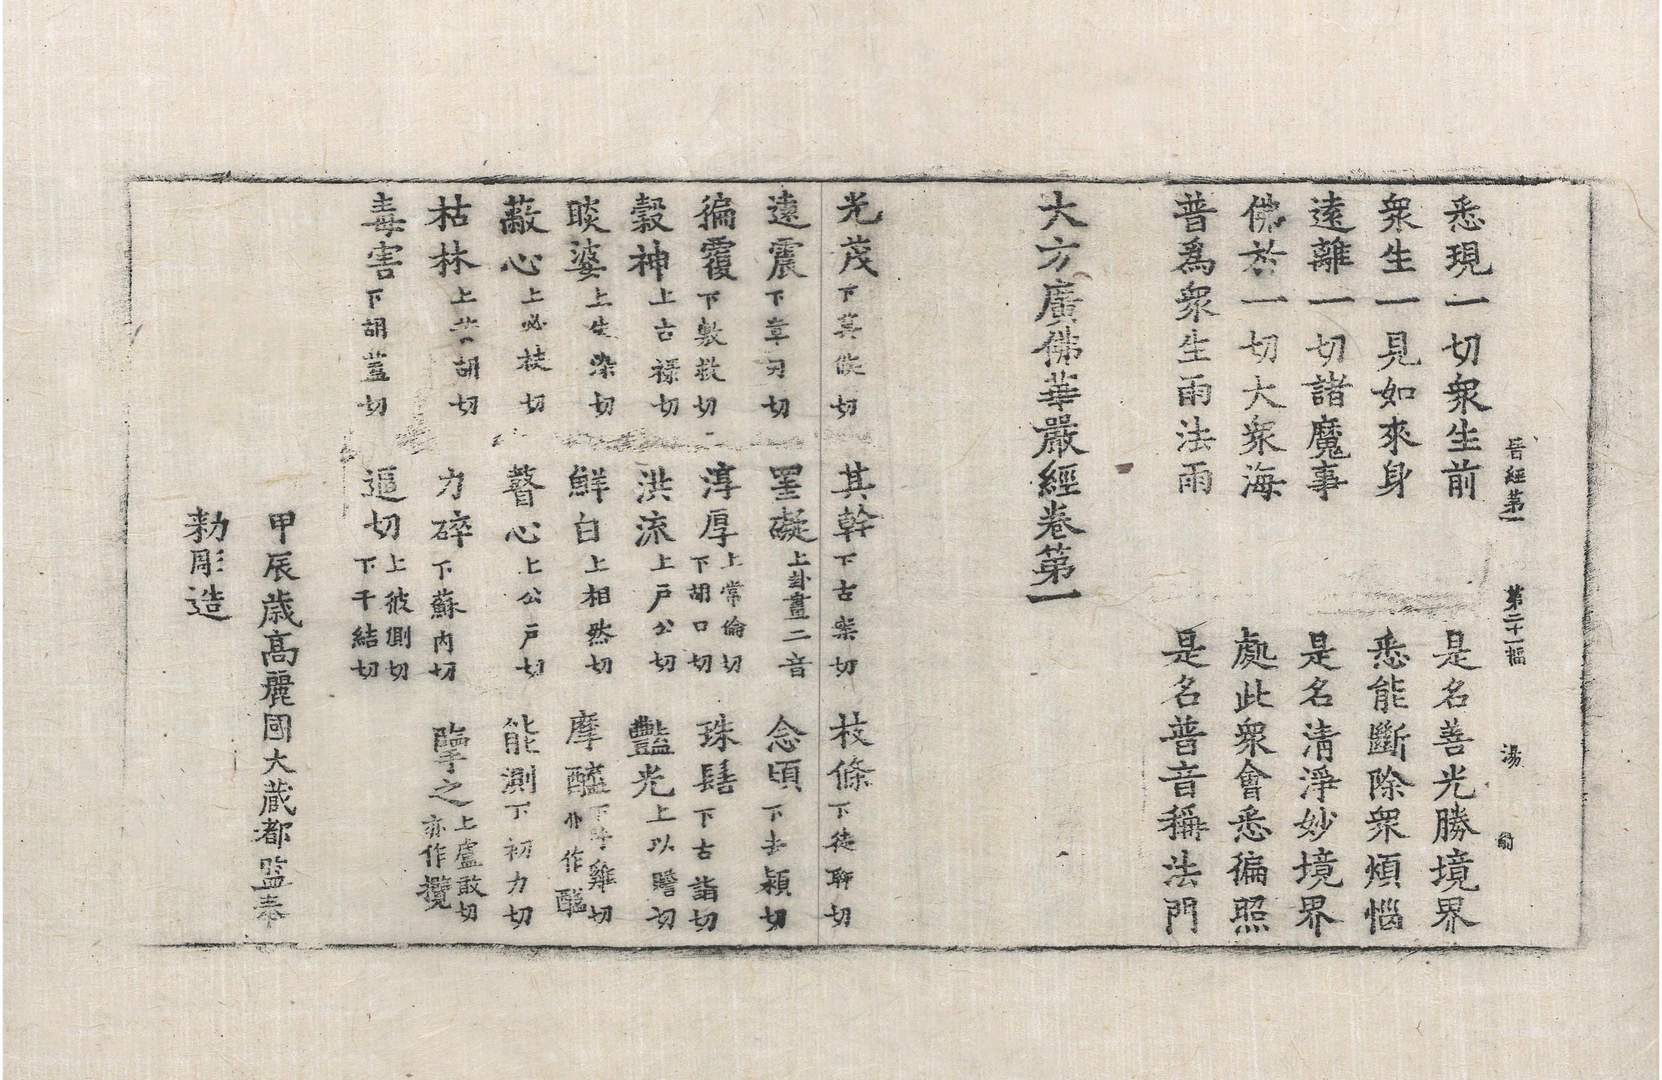 晉經第一 第二十一幅 湯
悉現一切衆生前 是名善光勝境界
衆生一見如來身 悉能斷除衆煩惱
遠離一切諸魔事 是名清淨妙境界
佛於一切大衆海 處此衆會悉徧照
普爲衆生雨法雨 是名普音稱法門
大方廣佛華嚴經卷第一
光茂下莫候切 其幹下古案切 枝條下徒聊切
遠震下章刃切 罣礙上卦畫二音 念頃下去穎切
徧覆下敷救切 淳厚上常倫切下胡口切 珠髻下古詣切
穀神上古祿切 洪流上戶公切 豔光上以贍切
睒婆上失染切 鮮白上相然切 摩醯下呼雞切亦作醯
蔽心上必袂切 瞽心上公戶切 能測下初力切
枯林上苦胡切 力碎下蘇內切 擥之上盧敢切亦作攬
毒害下胡蓋切 逼切上彼側切下千結切
甲辰歲高麗國大藏都監奉
勑彫造